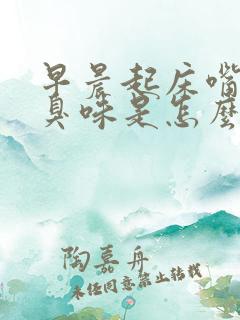 早晨起床嘴
臭味是怎麽
陶慕舟
未经同意禁止转载